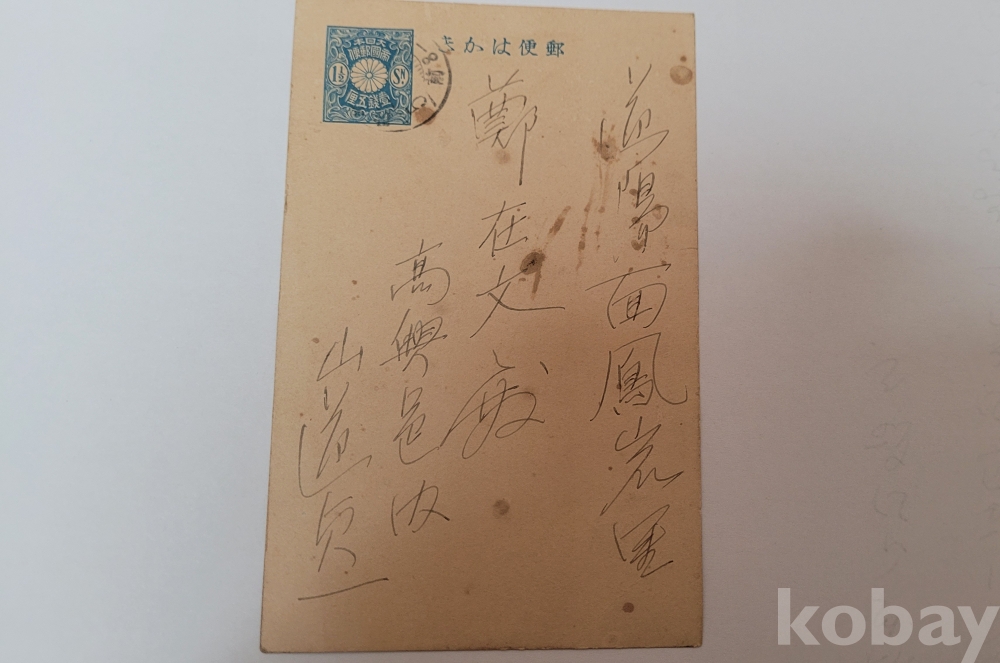 郵便はかき
大日本
帝國郵便
1½ Sn
壹錢五厘
道陽面鳳岩里
鄭在文殿
高興邑内
山道貞一
kobay